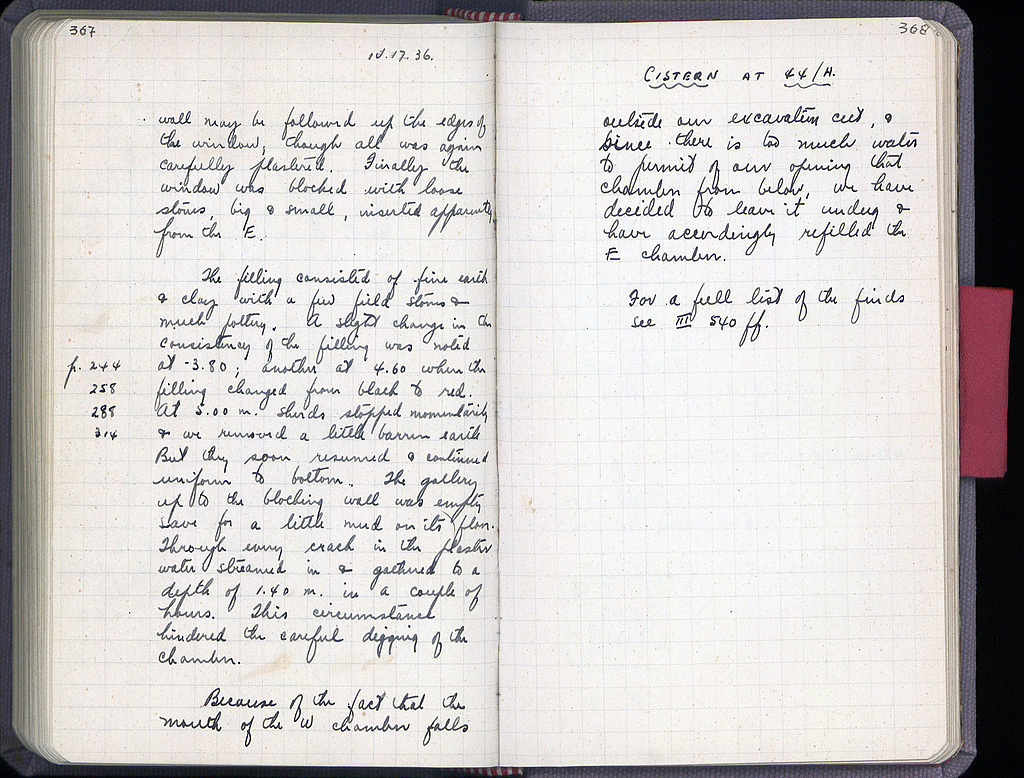 367
IV.17.36.
wall may be followed up the edges of
the window, though all was again
carefully plastered. Finally the
window was blocked with loose
stones, big & small, inserted apparently
from the E.
The filling consisted of fine earth
& clay with a few field stones &
much pottery. A slight change in the
consistency of the filling was noted
p. 244 at -3.80; another at 4.60 when the
258 filling changed from black to red.
288 At 5.00 m. sherds stopped momentarily
314 & we removed a little barren earth
But they soon resumed & continued
uniform to bottom. The gallery
up to the blocking wall was empty
save for a little mud on its floor.
Through every crack in the plaster
water streamed in & gathered to a
depth of 1.40 m. in a couple of
hours. This circumstance
hindered the careful digging of the
chamber.
Because of the fact that the
mouth of the W chamber falls
368
CISTERN AT 44/H.
outside our excavation cut, &
since there is too much water
to permit of our opening that
chamber from below, we have
decided to leave it undug &
have accordingly refilled the
E chamber.
For a full list of the finds
see III 540 ff.